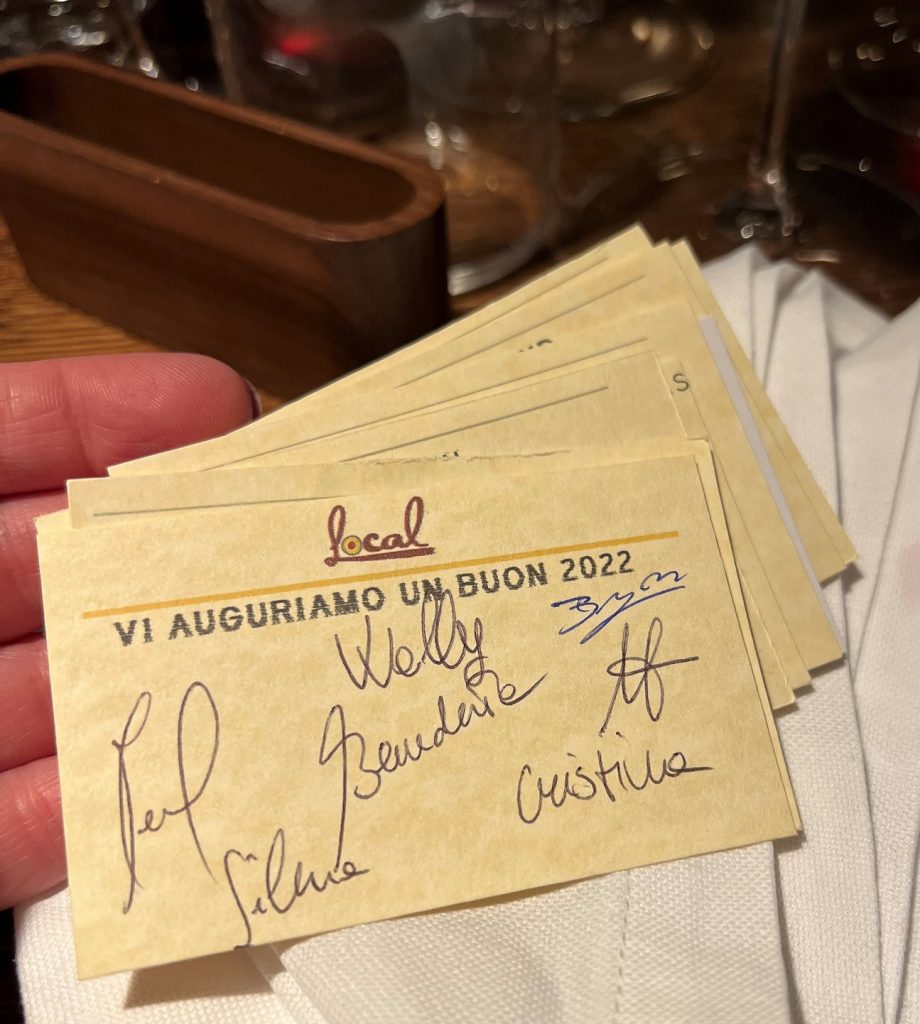 Local
VI AUGURIAMO UN BUON 2022
Wally
Benedetta
Cristina
Silvia
S